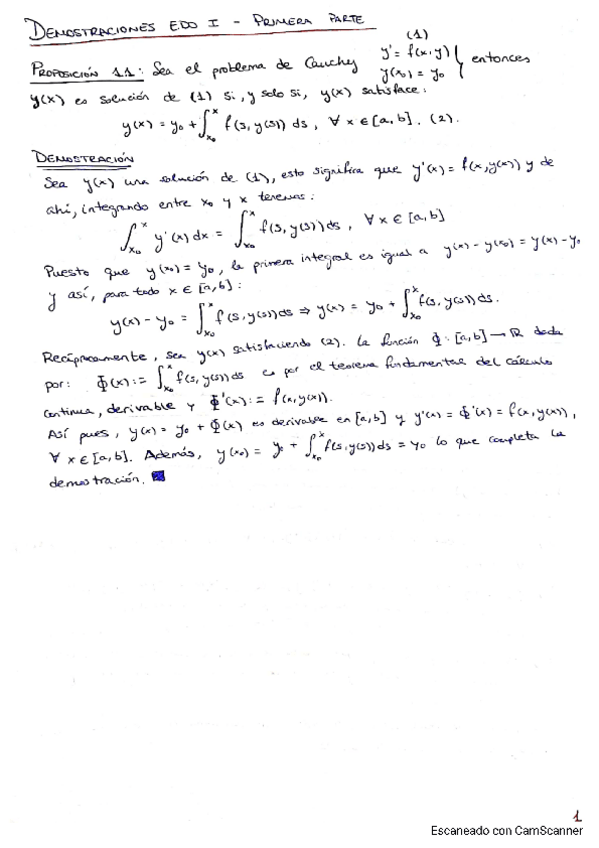 DEMOSTRACIONES EDO I - PRIMERA PARTE
PROPOSICIÓN 1.1: Sea el problema de Cauchy (1) y' = f(x,y) y(x₀) = y₀ } entonces
y(x) es solución de (1) si, y solo si, y(x) satisface:
y(x) = y₀ + ∫_{x₀}^{x} f(s, y(s)) ds, ∀ x ∈ [a,b]. (2).
DEMOSTRACIÓN
Sea y(x) una solución de (1), esto significa que y'(x) = f(x, y(x)) y de
ahí, integrando entre x₀ y x tenemos:
∫_{x₀}^{x} y'(x) dx = ∫_{x₀}^{x} f(s, y(s)) ds, ∀ x ∈ [a,b]
Puesto que y(x₀) = y₀, la primera integral es igual a y(x) - y(x₀) = y(x) - y₀
y así, para todo x ∈ [a,b]:
y(x) - y₀ = ∫_{x₀}^{x} f(s, y(s)) ds ⇒ y(x) = y₀ + ∫_{x₀}^{x} f(s, y(s)) ds.
Recíprocamente, sea y(x) satisfaciendo (2). La función Φ: [a,b] → ℝ dada
por: Φ(x) := ∫_{x₀}^{x} f(s, y(s)) ds es por el teorema fundamental del cálculo
continua, derivable y Φ'(x) := f(x, y(x)).
Así pues, y(x) = y₀ + Φ(x) es derivable en [a,b] y y'(x) = Φ'(x) = f(x, y(x)),
∀ x ∈ [a,b]. Además, y(x₀) = y₀ + ∫_{x₀}^{x} f(s, y(s)) ds = y₀ lo que completa la
demostración.
1
Escaneado con CamScanner